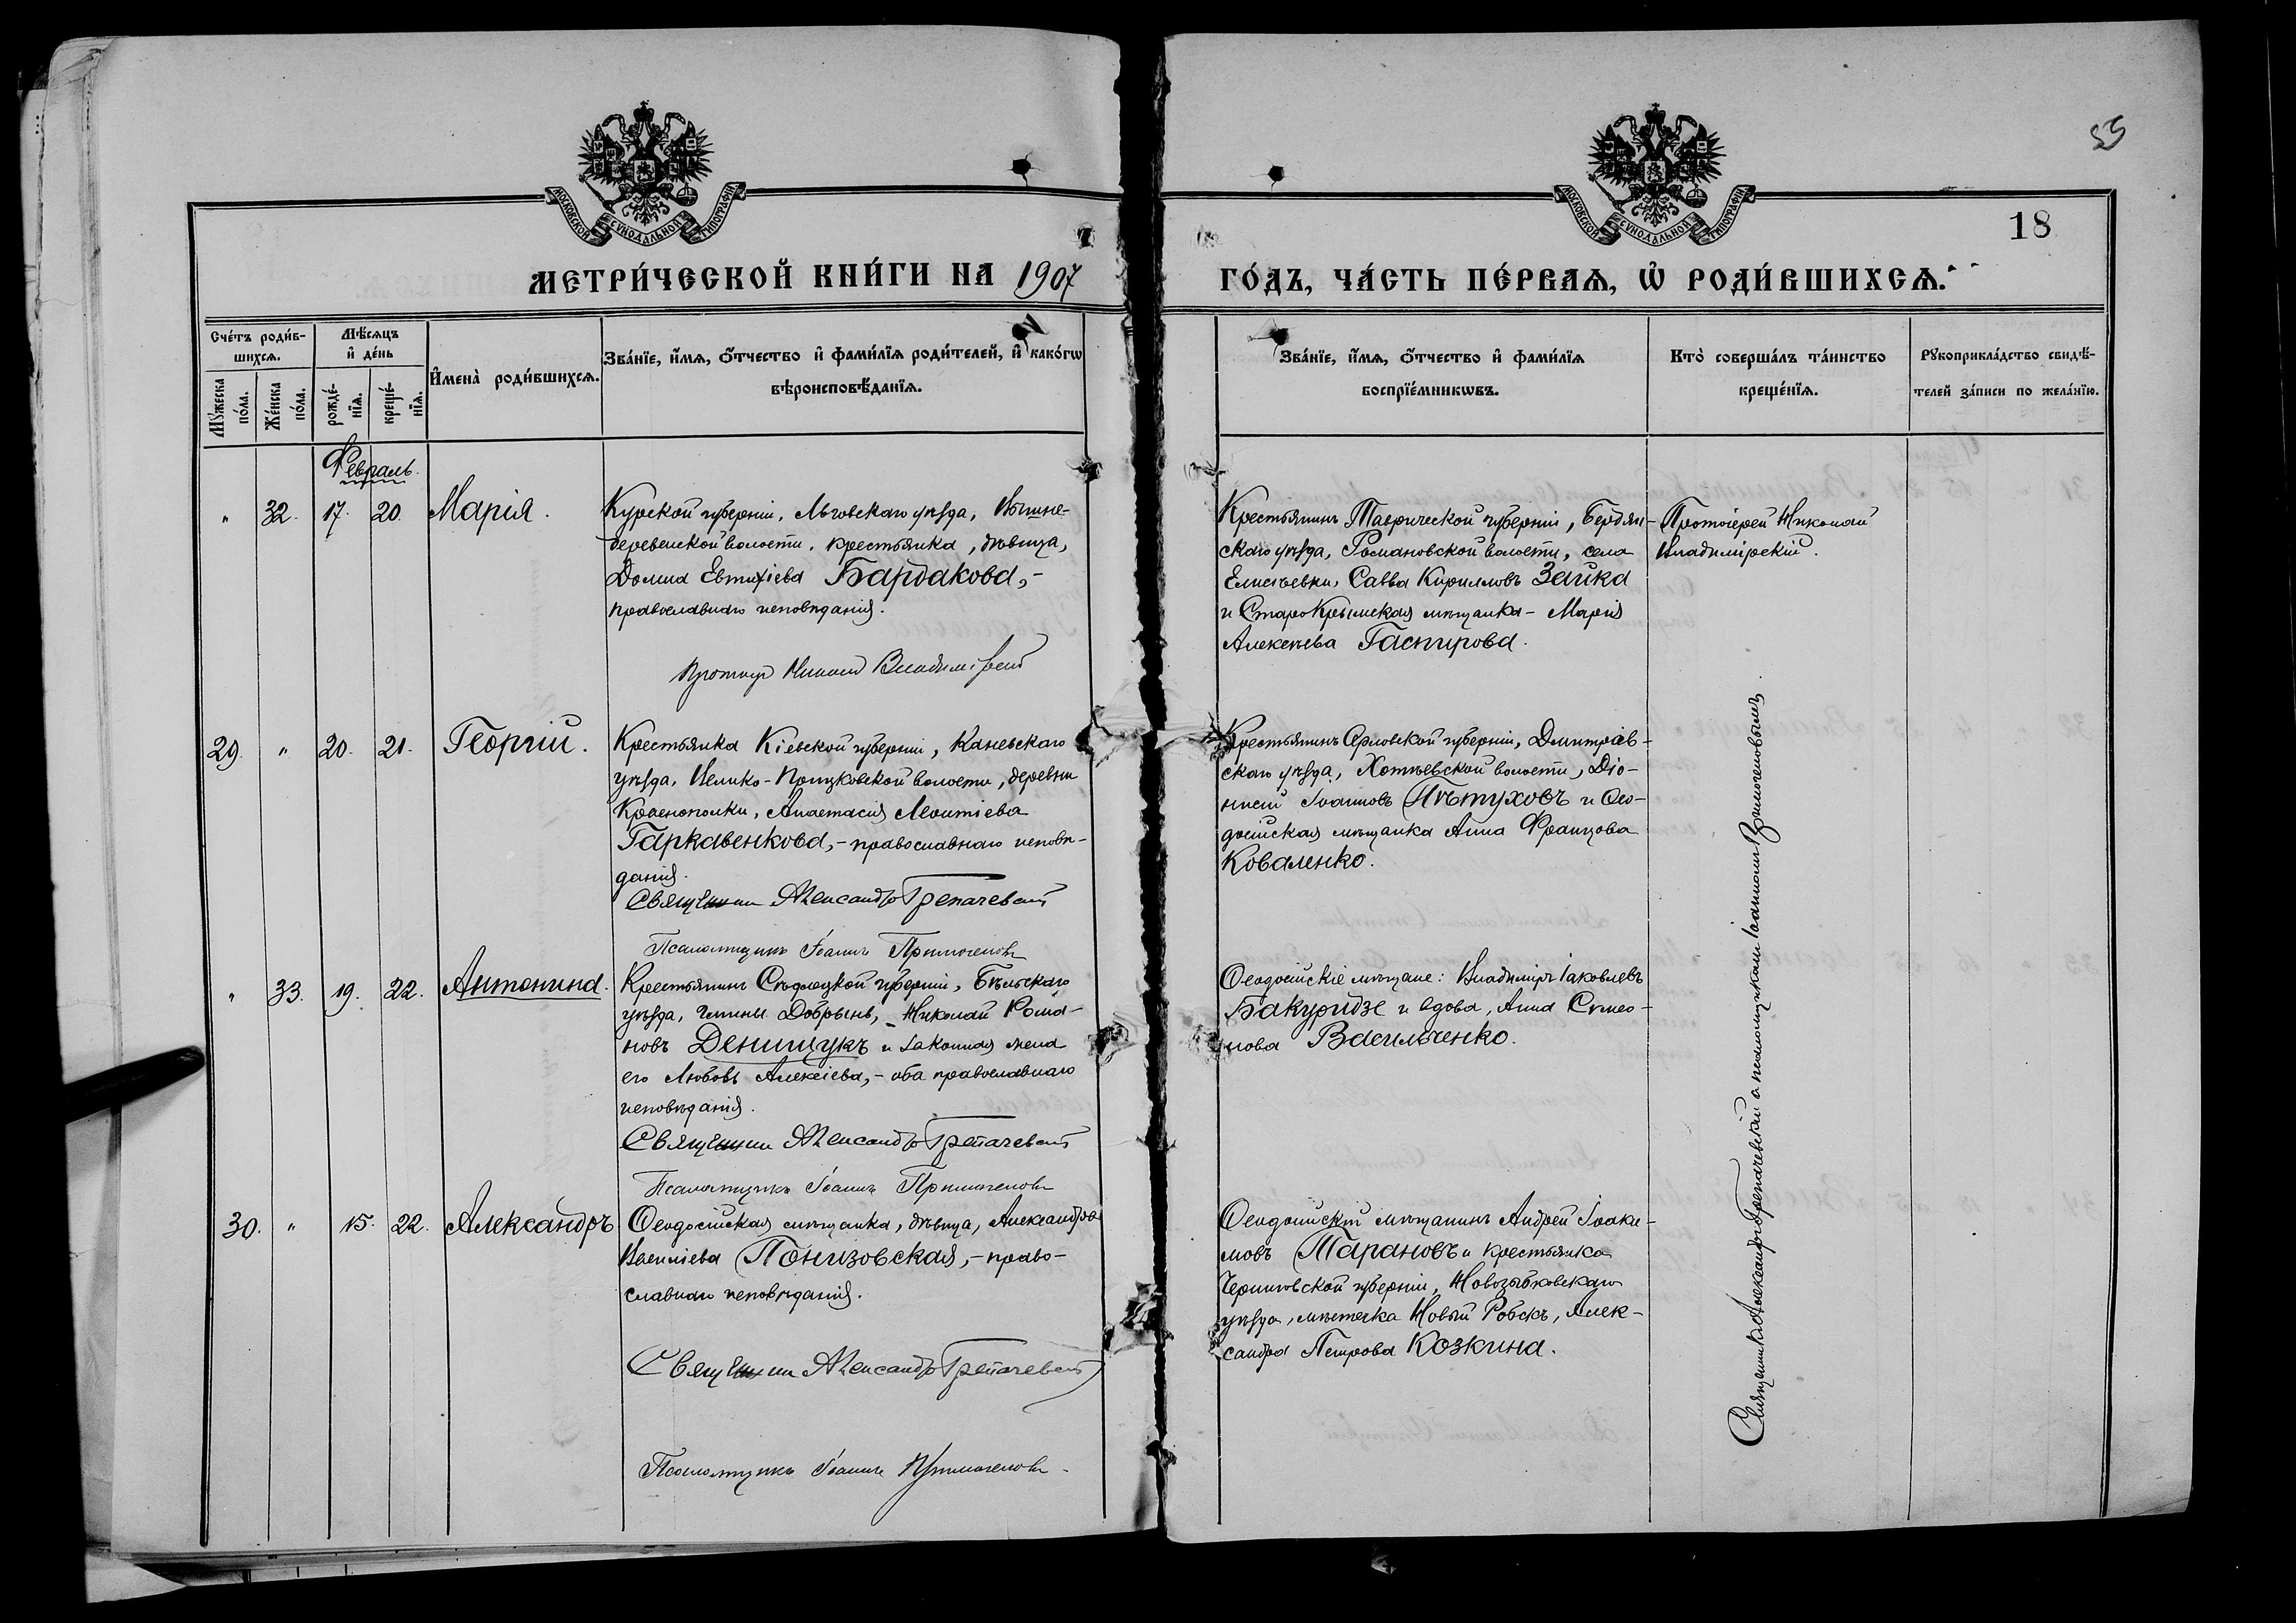 55
18
МОСКОВСКОЙ СѴНОДАЛЬНОЙ ТИПОГРАФІИ
МОСКОВСКОЙ СѴНОДАЛЬНОЙ ТИПОГРАФІИ
МЕТРИ́ЧЕСКОЙ КНИ́ГИ НА 1907
ГО́ДЪ, ЧА́СТЬ ПЕ́РВАѦ, Ѽ РОДИ́ВШИХСѦ.
Сче́тъ роди́в-
шихсѧ.
Мꙋ́жеска по́ла.
Же́нска по́ла.
Мѣ́сѧцъ
и҆ де́нь
рожде́-
нїѧ.
креще́-
нїѧ.
И҆мена̀ роди́вшихсѧ.
Зва́нїе, и҆́мѧ, о҆́тчество и҆ фами́лїѧ роди́телей, и҆ како́гѡ
вѣроисповѣ́данїѧ.
Зва́нїе, и҆́мѧ, о҆́тчество и҆ фами́лїѧ
воспрїе́мникѡвъ.
Кто̀ соверша́лъ та́инство
креще́нїѧ.
Рꙋкоприкла́дство свидѣ́-
телей за́писи по жела́нїю.
Февраль.
" 32. 17. 20. Марія.
Курской губерніи, Льговскаго уѣзда, Вышне-
деревенской волости, крестьянка, дѣвица,
Домна Евтихіева Бардакова,-
православнаго исповѣданія.
Протоіер Николай Владимірскій
Крестьянинъ Таврической губерніи, Бердян-
скаго уѣзда, Романовской волости, села
Елисѣевки, Савва Кирилловъ Зайка
и СтароКрымская мѣщанка - Марія
Алексѣева Гаспирова.
Протоіерей Николай
Владимірскій.
29. " 20. 21. Георгій.
Крестьянка Кіевской губерніи, Каневскаго
уѣзда, Велико-Прицковской волости, деревни
Краснополки, Анастасія Леонтіева
Гаркавенкова,- православнаго исповѣ-
данія.
Священник Александр Трепачевскій
Псаломщикъ Іоаннъ Примогеновъ
Крестьянинъ Орловской губерніи, Дмитріев-
скаго уѣзда, Хотѣевской волости, Діо-
нисій Іоанновъ Пѣтуховъ и Ѳео-
досійская мѣщанка Анна Францова
Коваленко.
" 33. 19. 22. Антонина.
Крестьянинъ Сѣдлецкой губерніи, Бѣльскаго
уѣзда, гмины Добрынь, Николай Рома-
новъ Денищукъ и законная жена
его Любовь Алексіева,- оба православнаго
исповѣданія.
Священник Александр Трепачевскій
Псаломщикъ Іоаннъ Примогеновъ
Ѳеодосійскіе мѣщане: Владиміръ Іаковлевъ
Бакуридзе и вдова, Анна Симео-
нова Васильченко.
30. " 15. 22. Александръ
Ѳеодосійская мѣщанка, дѣвица, Александра
Василіева Понизовская,- право-
славнаго исповѣданія.
Священник Александр Трепачевскій
Псаломщикъ Іоаннъ Примогеновъ
Ѳеодосійскій мѣщанинъ Андрей Іоаки-
мовъ Тарановъ и крестьянка
Черниговской губерніи, Новозыбковскаго
уѣзда, мѣстечка Новый Ропскъ, Алек-
сандра Петрова Козкина.
Священникъ Александръ Трепачевскій съ псаломщикомъ Іоанномъ Примогеновымъ.